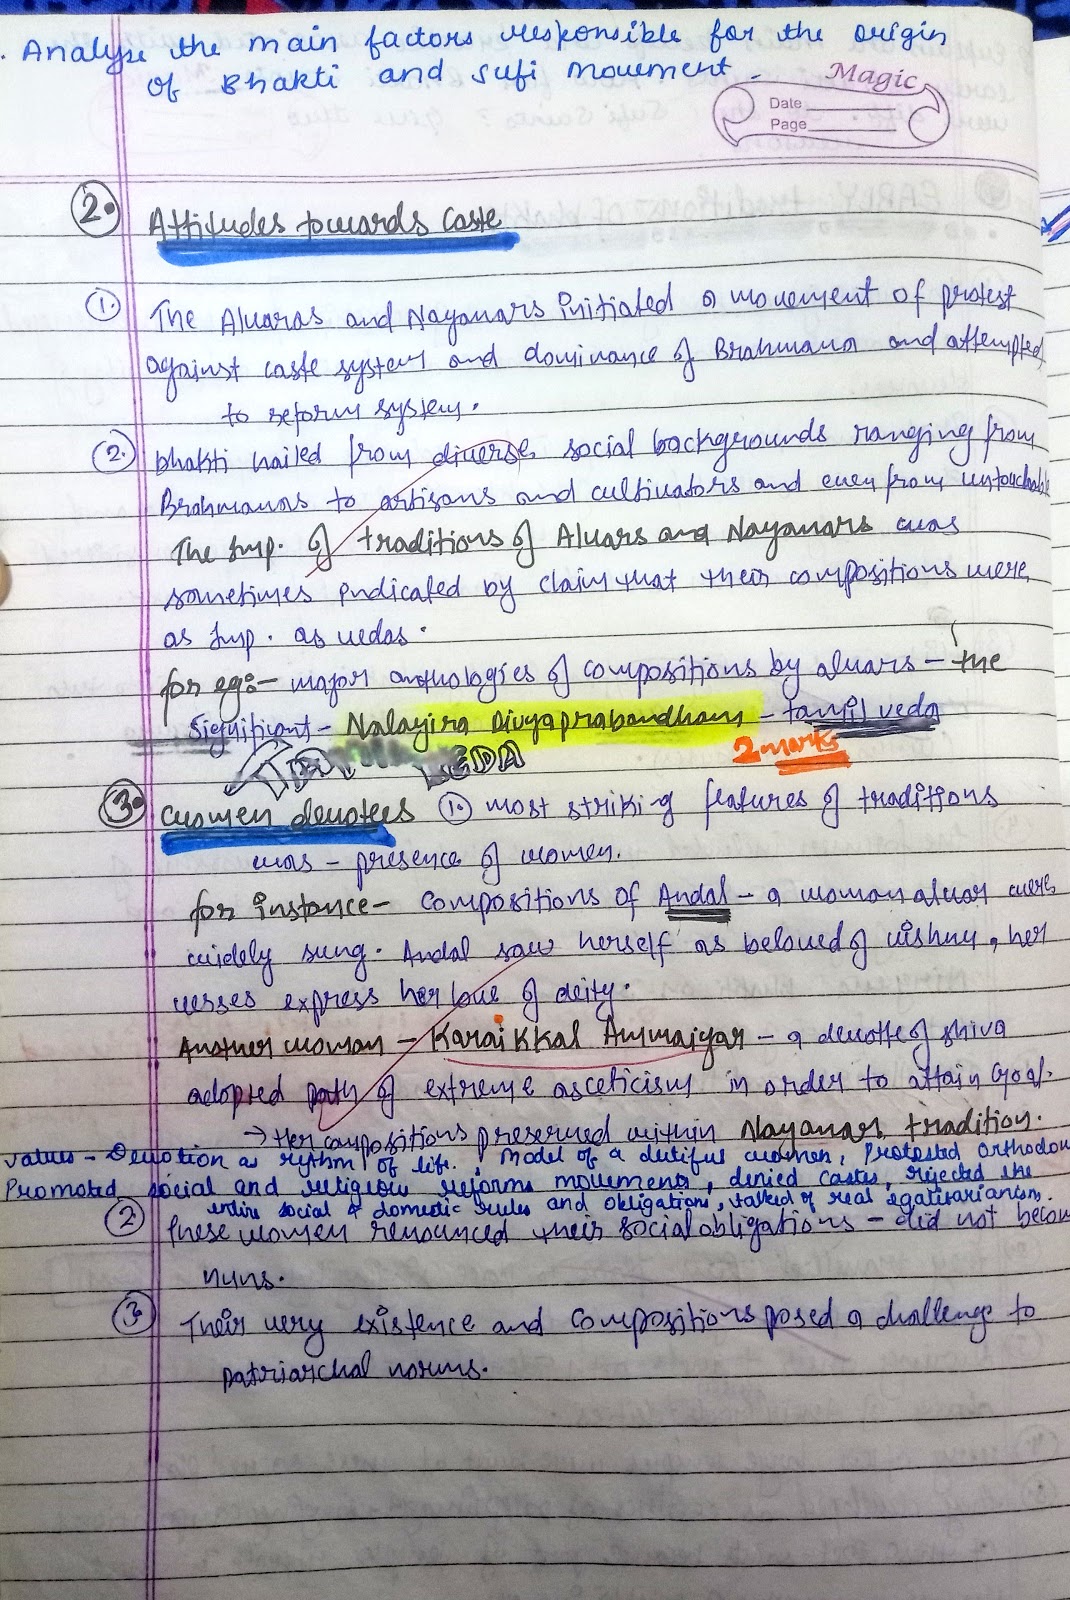 . Analyse the main factors responsible for the origin
of Bhakti and Sufi movement.
Magic
Date
Page
2. Attitudes towards Caste
1. The Alvaras and Nayanars initiated a movement of protest
against caste system and dominance of Brahmana and attempted
to reform system.
2. bhakti hailed from diverse social backgrounds ranging from
Brahmanas to artisans and cultivators and even from untouchable
The Imp. of traditions of Alvars and Nayanars was
sometimes indicated by claim that their compositions were
as Imp. as vedas.
for eg:- major anthologies of compositions by alvars - the
Significant - Nalayira Divyaprabandham - tamil veda
VEDA 2 marks
3. women devotees 1. most striking features of traditions
was - presence of women.
for instance - Compositions of Andal - a woman alvar were
widely sung. Andal saw herself as beloved of vishnu, her
verses express her love of deity.
Another woman - Karaikkal Ammaiyar - a devotte of shiva
adopted path of extreme asceticism in order to attain Goal.
→ Her compositions preserved within Nayanars tradition.
values - Devotion as rythm of life. , Model of a dutiful women, Protested Orthodox
Promoted social and religiow reforms movements, denied castes, rejected the
entire social & domestic rules and obligations, talked of real egatisarianism.
2 These women renounced their social obligations - did not becom
nuns.
3 Their very existence and compositions posed a challenge to
patriarchal norms.